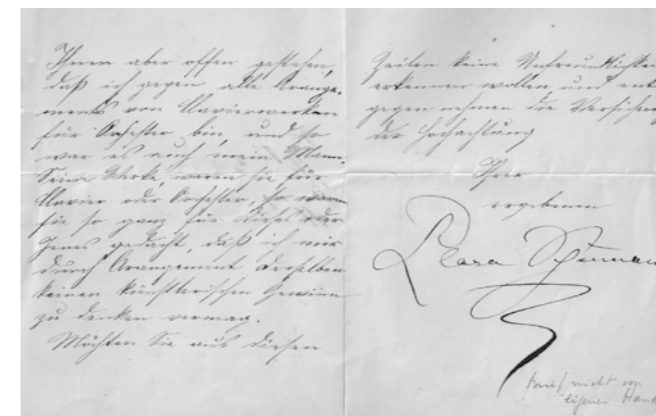 Ihnen aber offen gestehen,
daß ich gegen alle Arange-
ments von Clavierwerken
für Orchester bin, und so
war es auch mein Mann.
Seine Werke, waren sie für
Clavier oder Orchester, so waren
sie so ganz für Dieses oder
Jenes gedacht, daß ich mir
durch Arangement derselben
keinen künstlerischen Gewinn
zu denken vermag.
Möchten Sie aus diesen
Zeilen keine Unfreundlichkei
erkennen wollen, und ent
gegen nehmen die Versicher
der Hochachtung
Ihrer
ergebenen
Clara Schuman
Brief nicht von
eigener Hand